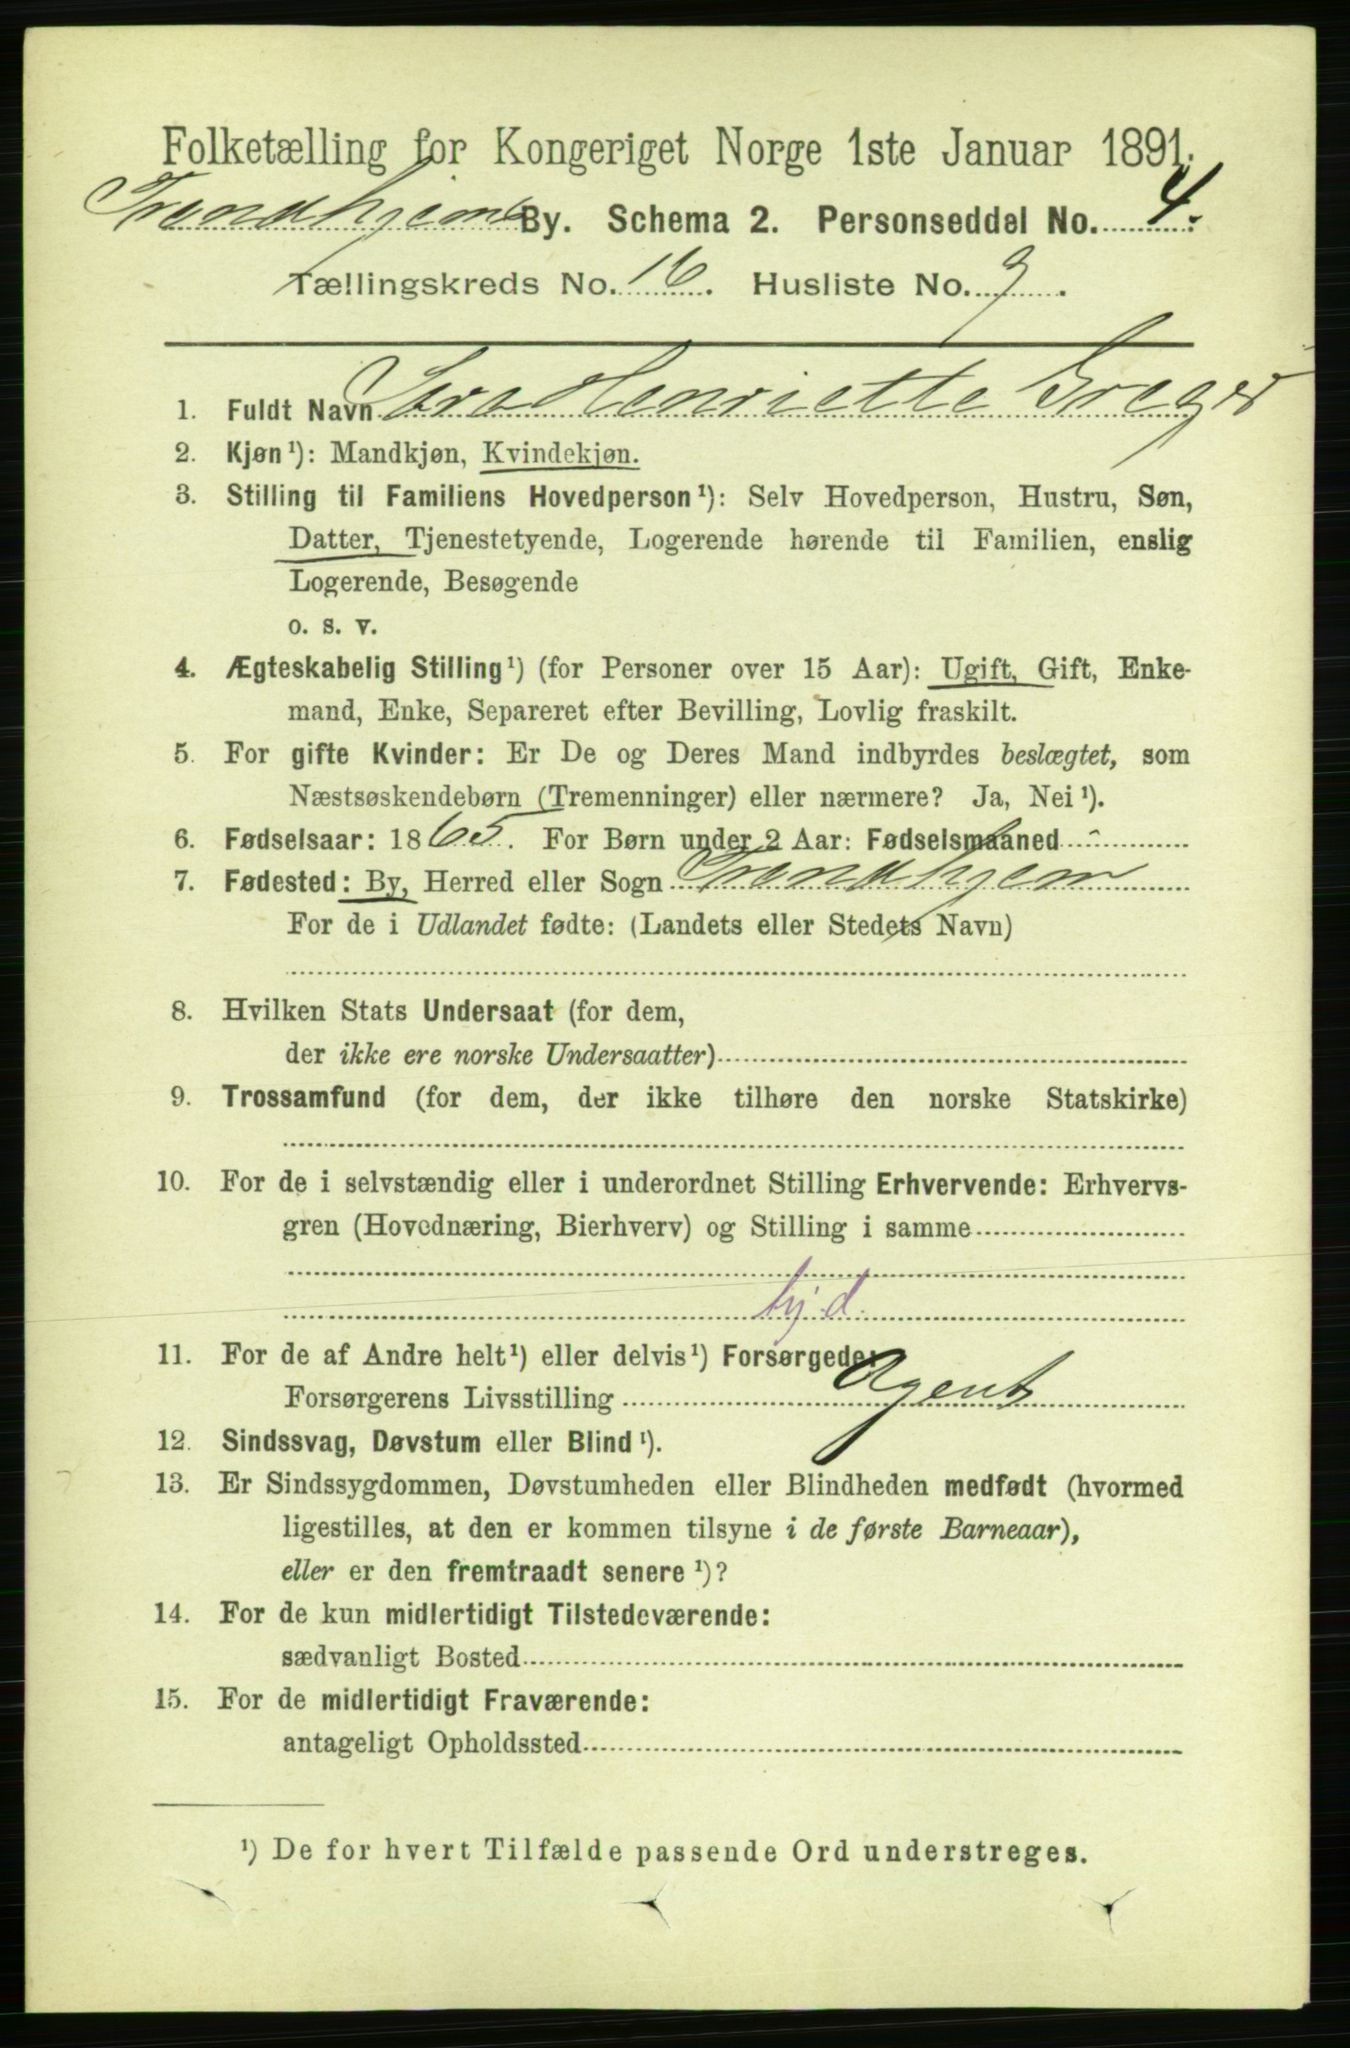 Folketælling for Kongeriget Norge 1ste Januar 1891.
Trondhjems By. Schema 2. Personseddel No. 4.
Tællingskreds No. 16. Husliste No. 9.
1. Fuldt Navn Henriette
2. Kjøn ¹): Mandkjøn, Kvindekjøn.
3. Stilling til Familiens Hovedperson ¹): Selv Hovedperson, Hustru, Søn,
Datter, Tjenestetyende, Logerende hørende til Familien, enslig
Logerende, Besøgende
o. s. v.
4. Ægteskabelig Stilling ¹) (for Personer over 15 Aar): Ugift, Gift, Enke-
mand, Enke, Separeret efter Bevilling, Lovlig fraskilt.
5. For gifte Kvinder: Er De og Deres Mand indbyrdes beslægtet, som
Næstsøskendebørn (Tremenninger) eller nærmere? Ja, Nei ¹).
6. Fødselsaar: 1865. For Børn under 2 Aar: Fødselsmaaned
7. Fødested: By, Herred eller Sogn Trondhjem
For de i Udlandet fødte: (Landets eller Stedets Navn)
8. Hvilken Stats Undersaat (for dem,
der ikke ere norske Undersaatter)
9. Trossamfund (for dem, der ikke tilhøre den norske Statskirke)
10. For de i selvstændig eller i underordnet Stilling Erhvervende: Erhvervs-
gren (Hovednæring, Bierhverv) og Stilling i samme
hj. d.
11. For de af Andre helt ¹) eller delvis ¹) Forsørgede:
Forsørgerens Livsstilling Agent
12. Sindssvag, Døvstum eller Blind ¹).
13. Er Sindssygdommen, Døvstumheden eller Blindheden medfødt (hvormed
ligestilles, at den er kommen tilsyne i de første Barneaar),
eller er den fremtraadt senere ¹)?
14. For de kun midlertidigt Tilstedeværende:
sædvanligt Bosted
15. For de midlertidigt Fraværende:
antageligt Opholdssted
¹) De for hvert Tilfælde passende Ord understreges.